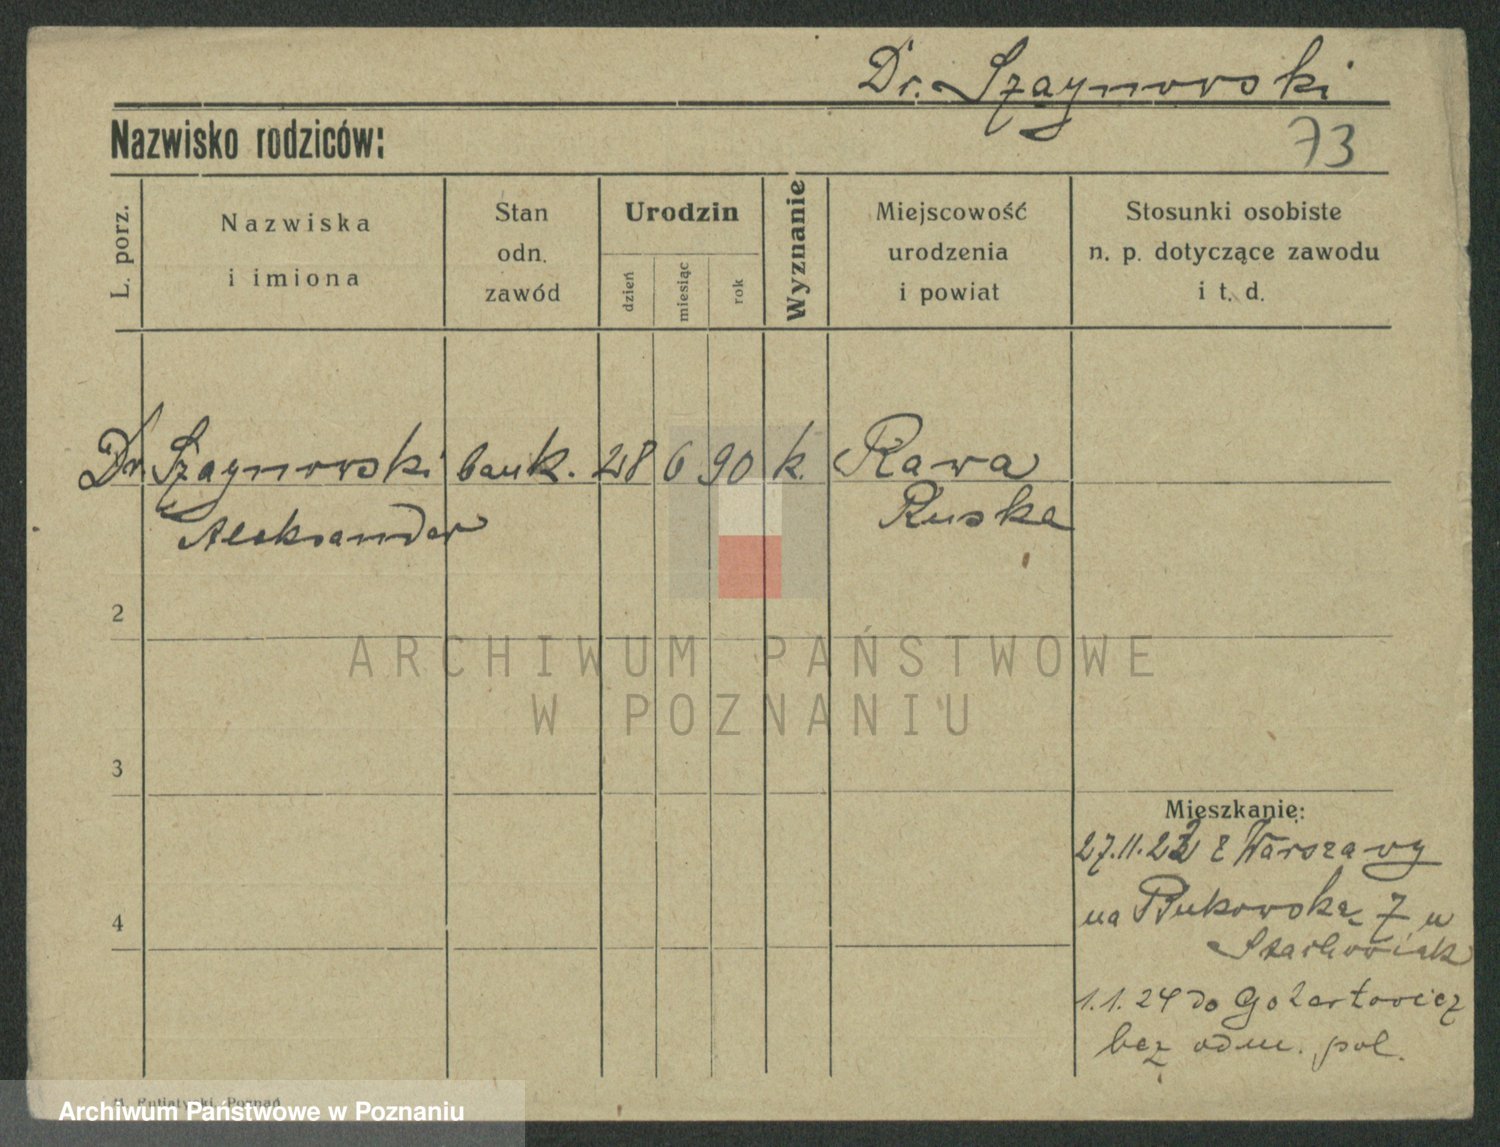 Dr. Szaynowski
Nazwisko rodziców:
73
L. porz.
Nazwiska
i imiona
Stan
odn.
zawód
Urodzin
dzień
miesiąc
rok
Wyznanie
Miejscowość
urodzenia
i powiat
Stosunki osobiste
n. p. dotyczące zawodu
i t. d.
Dr. Szaynowski bank. 28 6 90 k. Rawa
Aleksander Ruska
2
ARCHIWUM PAŃSTWOWE
W POZNANIU
3
Mieszkanie:
27.11.22 z Warszawy
4
na Bukowską 7 u
1.1.24 do
bez odm. pol.
Poznań
Archiwum Państwowe w Poznaniu